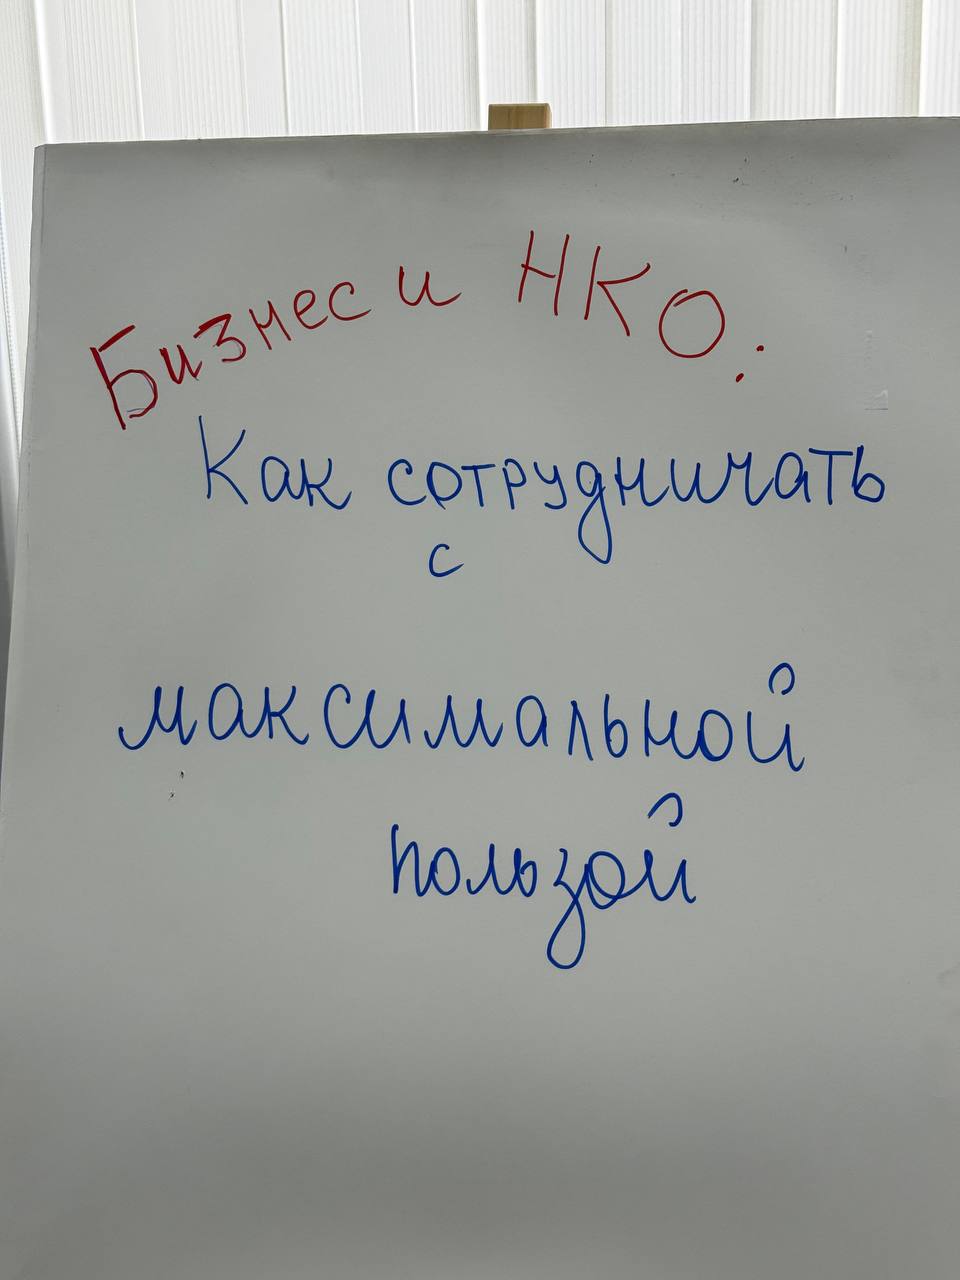 Бизнес и НКО:
Как сотрудничать
с
максимальной
пользой